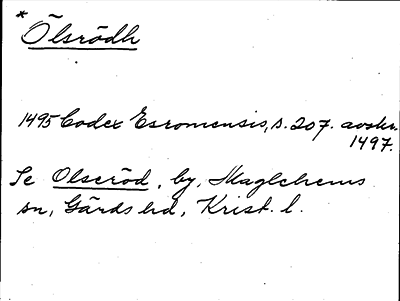 *
Ölsrödh
1495 Codex Esromensis, s. 207. avskr.
1497.
Se Olseröd, by, Maglehems
sn, Gärds hd, Krist. l.